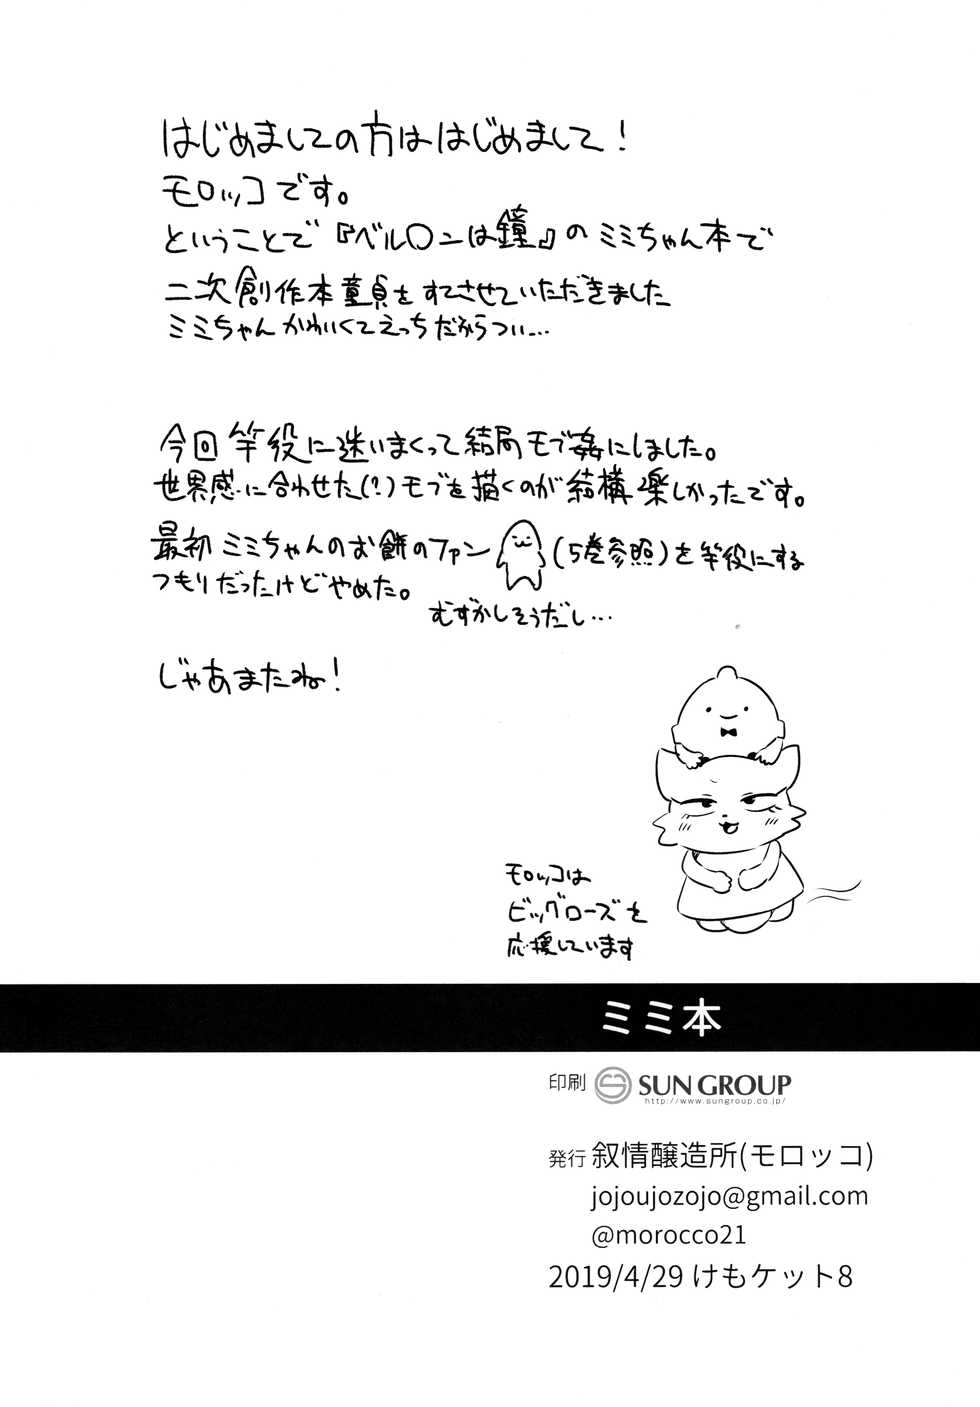 はじめましての方ははじめまして!
モロッコです。
ということで『ベルロンは鐘』のミミちゃん本で
二次創作本童貞をすてさせていただきました
ミミちゃんかわいくてえっちだからつい…
今回竿役に迷いまくって結局モブ姦にしました。
世界感に合わせた(?)モブを描くのが結構楽しかったです。
最初ミミちゃんのお餅のファン(5巻参照)を竿役にする
つもりだったけどやめた。
むずかしそうだし…
じゃあまたね!
モロッコは
ビッグローズを
応援しています
ミミ本
印刷 SUN GROUP
http://www.sungroup.co.jp/
発行 叙情醸造所(モロッコ)
jojoujozojo@gmail.com
@morocco21
2019/4/29 けもケット8